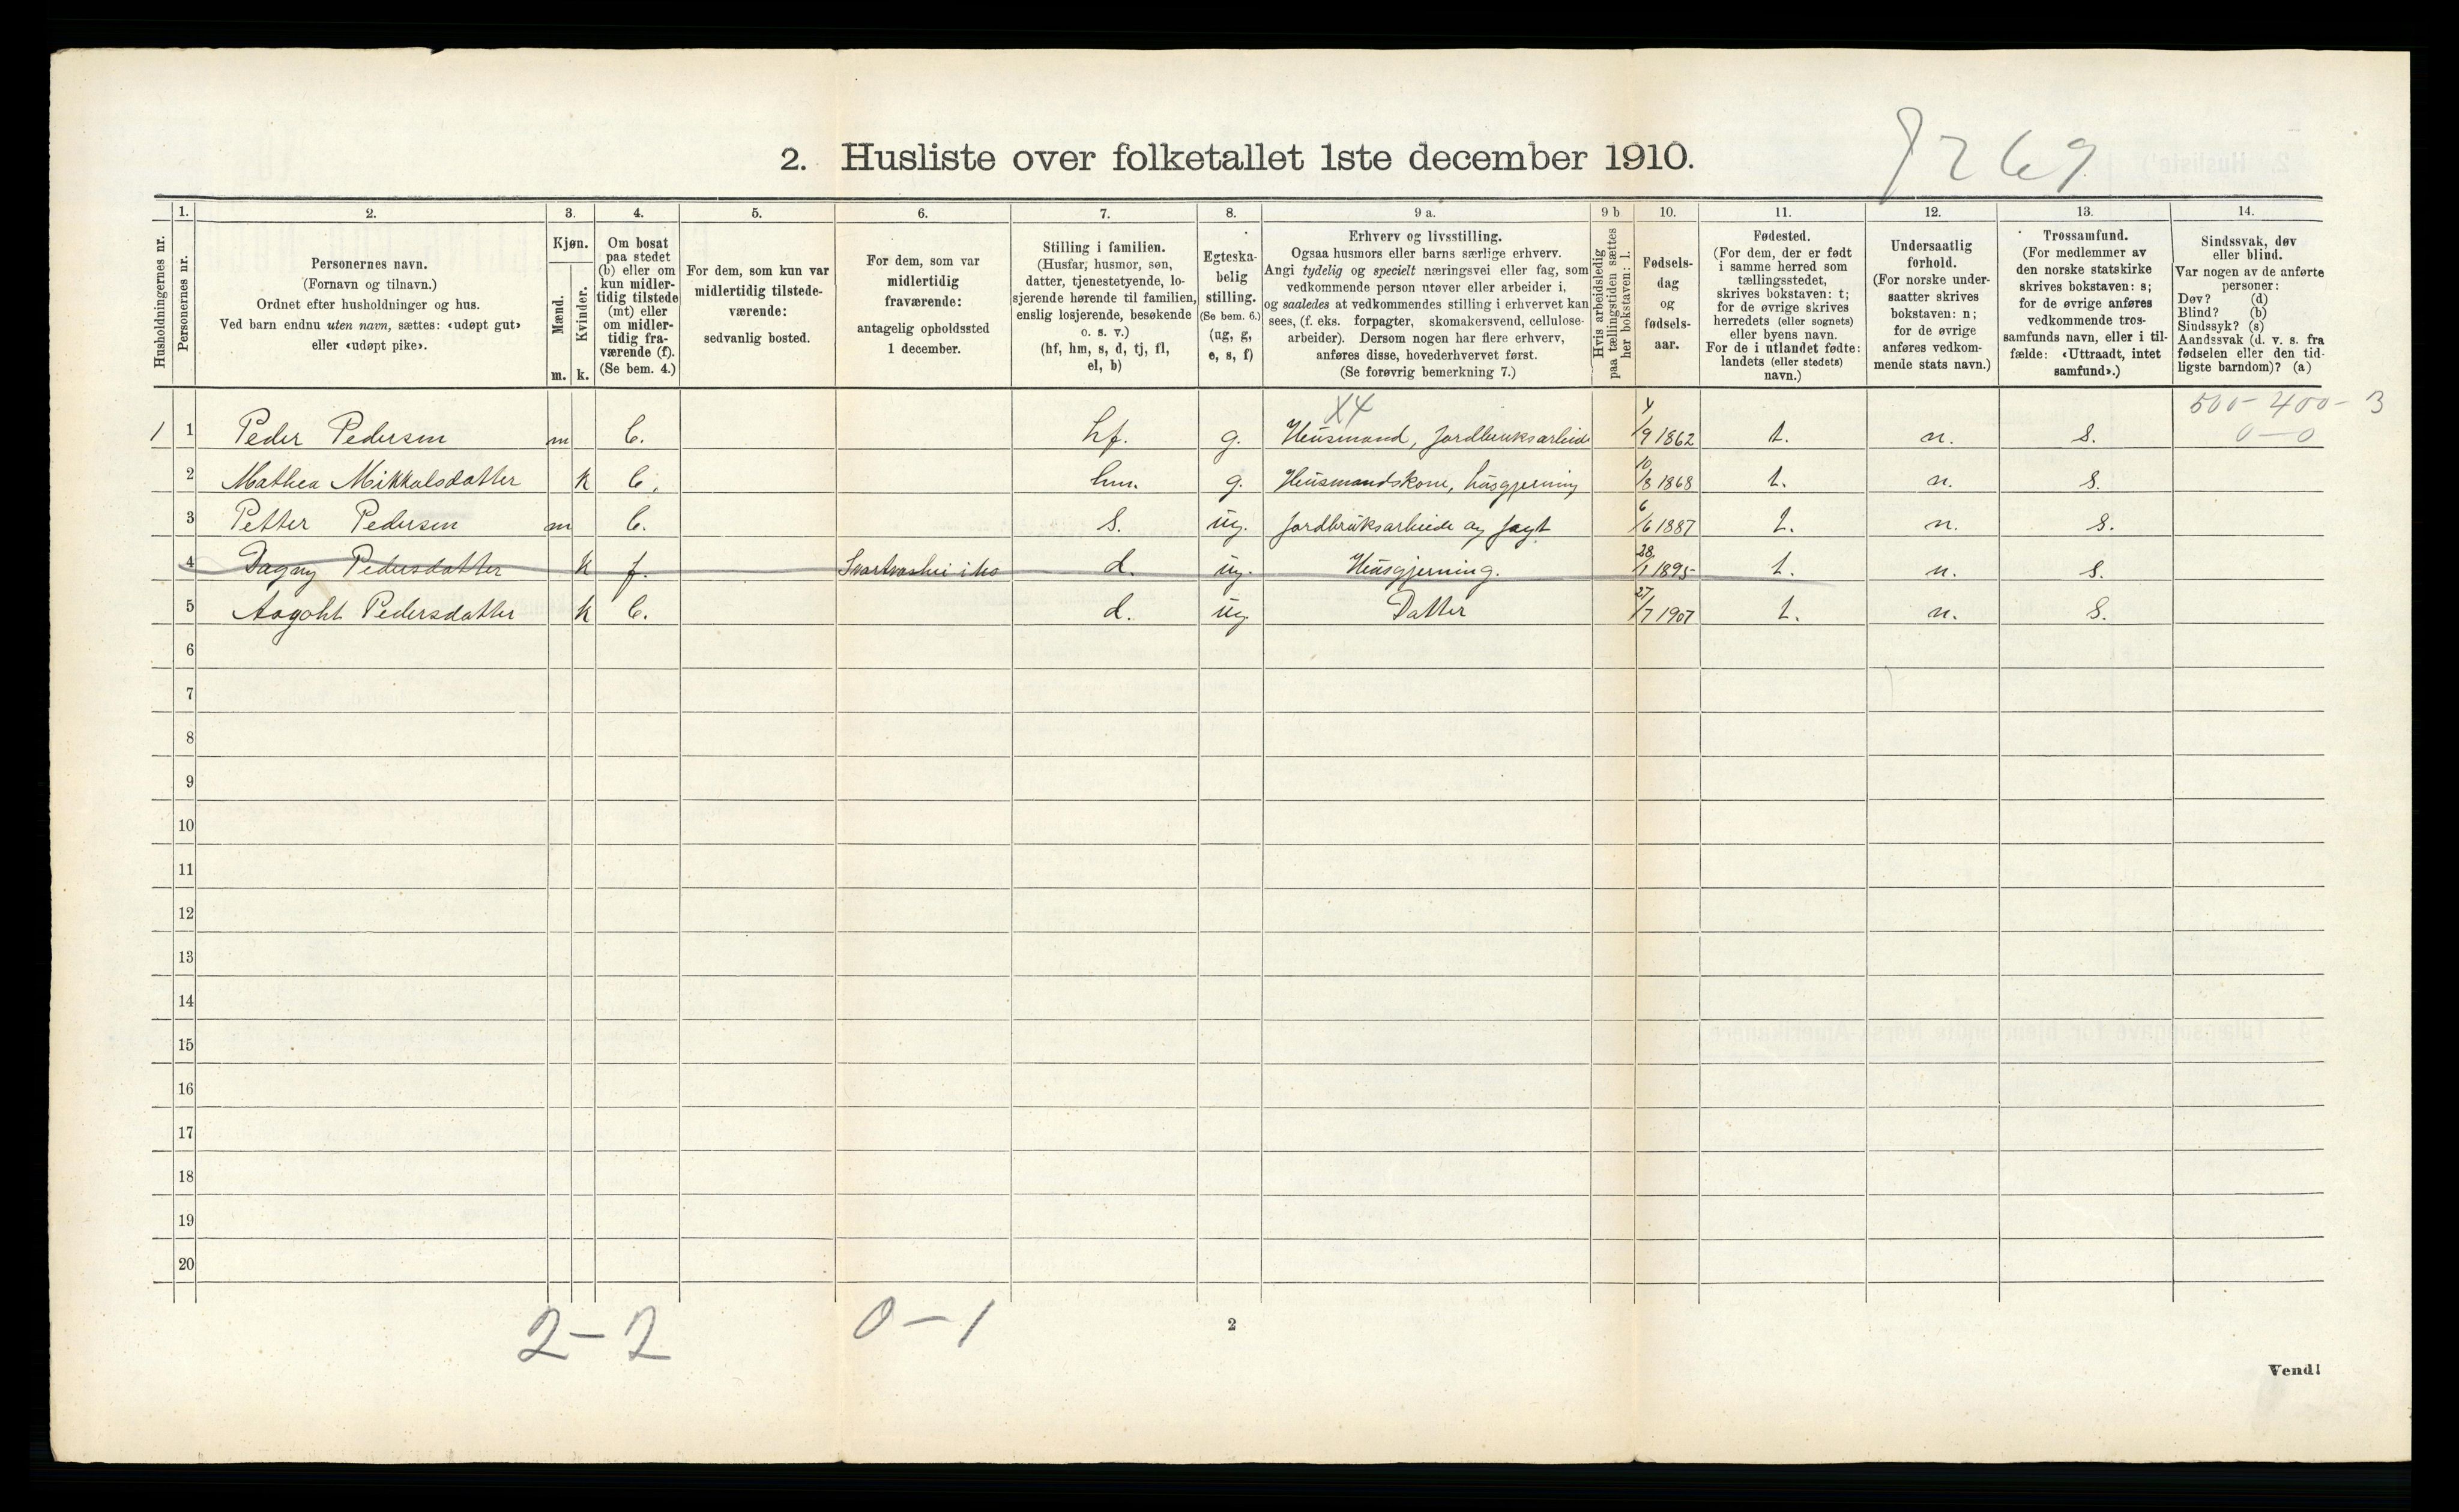 8269
2. Husliste over folketallet 1ste december 1910.
Husholdningernes nr.
1.
Personernes nr.
2.
Personernes navn.
(Fornavn og tilnavn.)
Ordnet efter husholdninger og hus.
Ved barn endnu uten navn, sættes: «udøpt gut»
eller «udøpt pike».
3.
Kjøn.
Mænd.
Kvinder.
m. k.
4.
Om bosat
paa stedet
(b) eller om
kun midler-
tidig tilstede
(mt) eller
om midler-
tidig fra-
værende (f).
(Se bem. 4.)
5.
For dem, som kun var
midlertidig tilstede-
værende:
sedvanlig bosted.
6.
For dem, som var
midlertidig
fraværende:
antagelig opholdssted
1 december.
7.
Stilling i familien.
(Husfar, husmor, søn,
datter, tjenestetyende, lo-
sjerende hørende til familien,
enslig losjerende, besøkende
o. s. v.)
(hf, hm, s, d, tj, fl,
el, b)
8.
Egteska-
belig
stilling.
(Se bem. 6.)
(ug, g,
e, s, f)
9 a.
Erhverv og livsstilling.
Ogsaa husmors eller barns særlige erhverv.
Angi tydelig og specielt næringsvei eller fag, som
vedkommende person utøver eller arbeider i,
og saaledes at vedkommendes stilling i erhvervet kan
sees, (f. eks. forpagter, skomakersvend, cellulose-
arbeider). Dersom nogen har flere erhverv,
anføres disse, hovederhvervet først.
(Se forøvrig bemerkning 7.)
9 b
Hvis arbeidsledig
paa tællingstiden sættes
her bokstaven: l.
10.
Fødsels-
dag
og
fødsels-
aar.
11.
Fødested.
(For dem, der er født
i samme herred som
tællingsstedet,
skrives bokstaven: t;
for de øvrige skrives
herredets (eller sognets)
eller byens navn.
For de i utlandet fødte:
landets (eller stedets)
navn.)
12.
Undersaatlig
forhold.
(For norske under-
saatter skrives
bokstaven: n;
for de øvrige
anføres vedkom-
mende stats navn.)
13.
Trossamfund.
(For medlemmer av
den norske statskirke
skrives bokstaven: s;
for de øvrige anføres
vedkommende tros-
samfunds navn, eller i til-
fælde: «Uttraadt, intet
samfund».)
14.
Sindssvak, døv
eller blind.
Var nogen av de anførte
personer:
Døv? (d)
Blind? (b)
Sindssyk? (s)
Aandssvak (d. v. s. fra
fødselen eller den tid-
ligste barndom)? (a)
X4 500-400-3
1 1 Peder Pedersen m b. hf. g. Husmand, Jordbruksarbeide 4/9 1862 t. n. s. 0-0
2 Mathea Mikkalsdatter k b. hm. g. Husmandskone, husgjerning 10/8 1868 t. n. s.
3 Petter Pedersen m b. s. ug. Jordbruksarbeide og Jagt 6/6 1887 t. n. s.
4 Dagny Pedersdatter k f. i Mo d. ug. Husgjerning. 28/1 1895 t. n. s.
5 Aagoht Pedersdatter k b. d. ug. Datter 27/7 1907 t. n. s.
6
7
8
9
10
11
12
13
14
15
16
17
18
19
20
2-2 0-1
2
Vend!